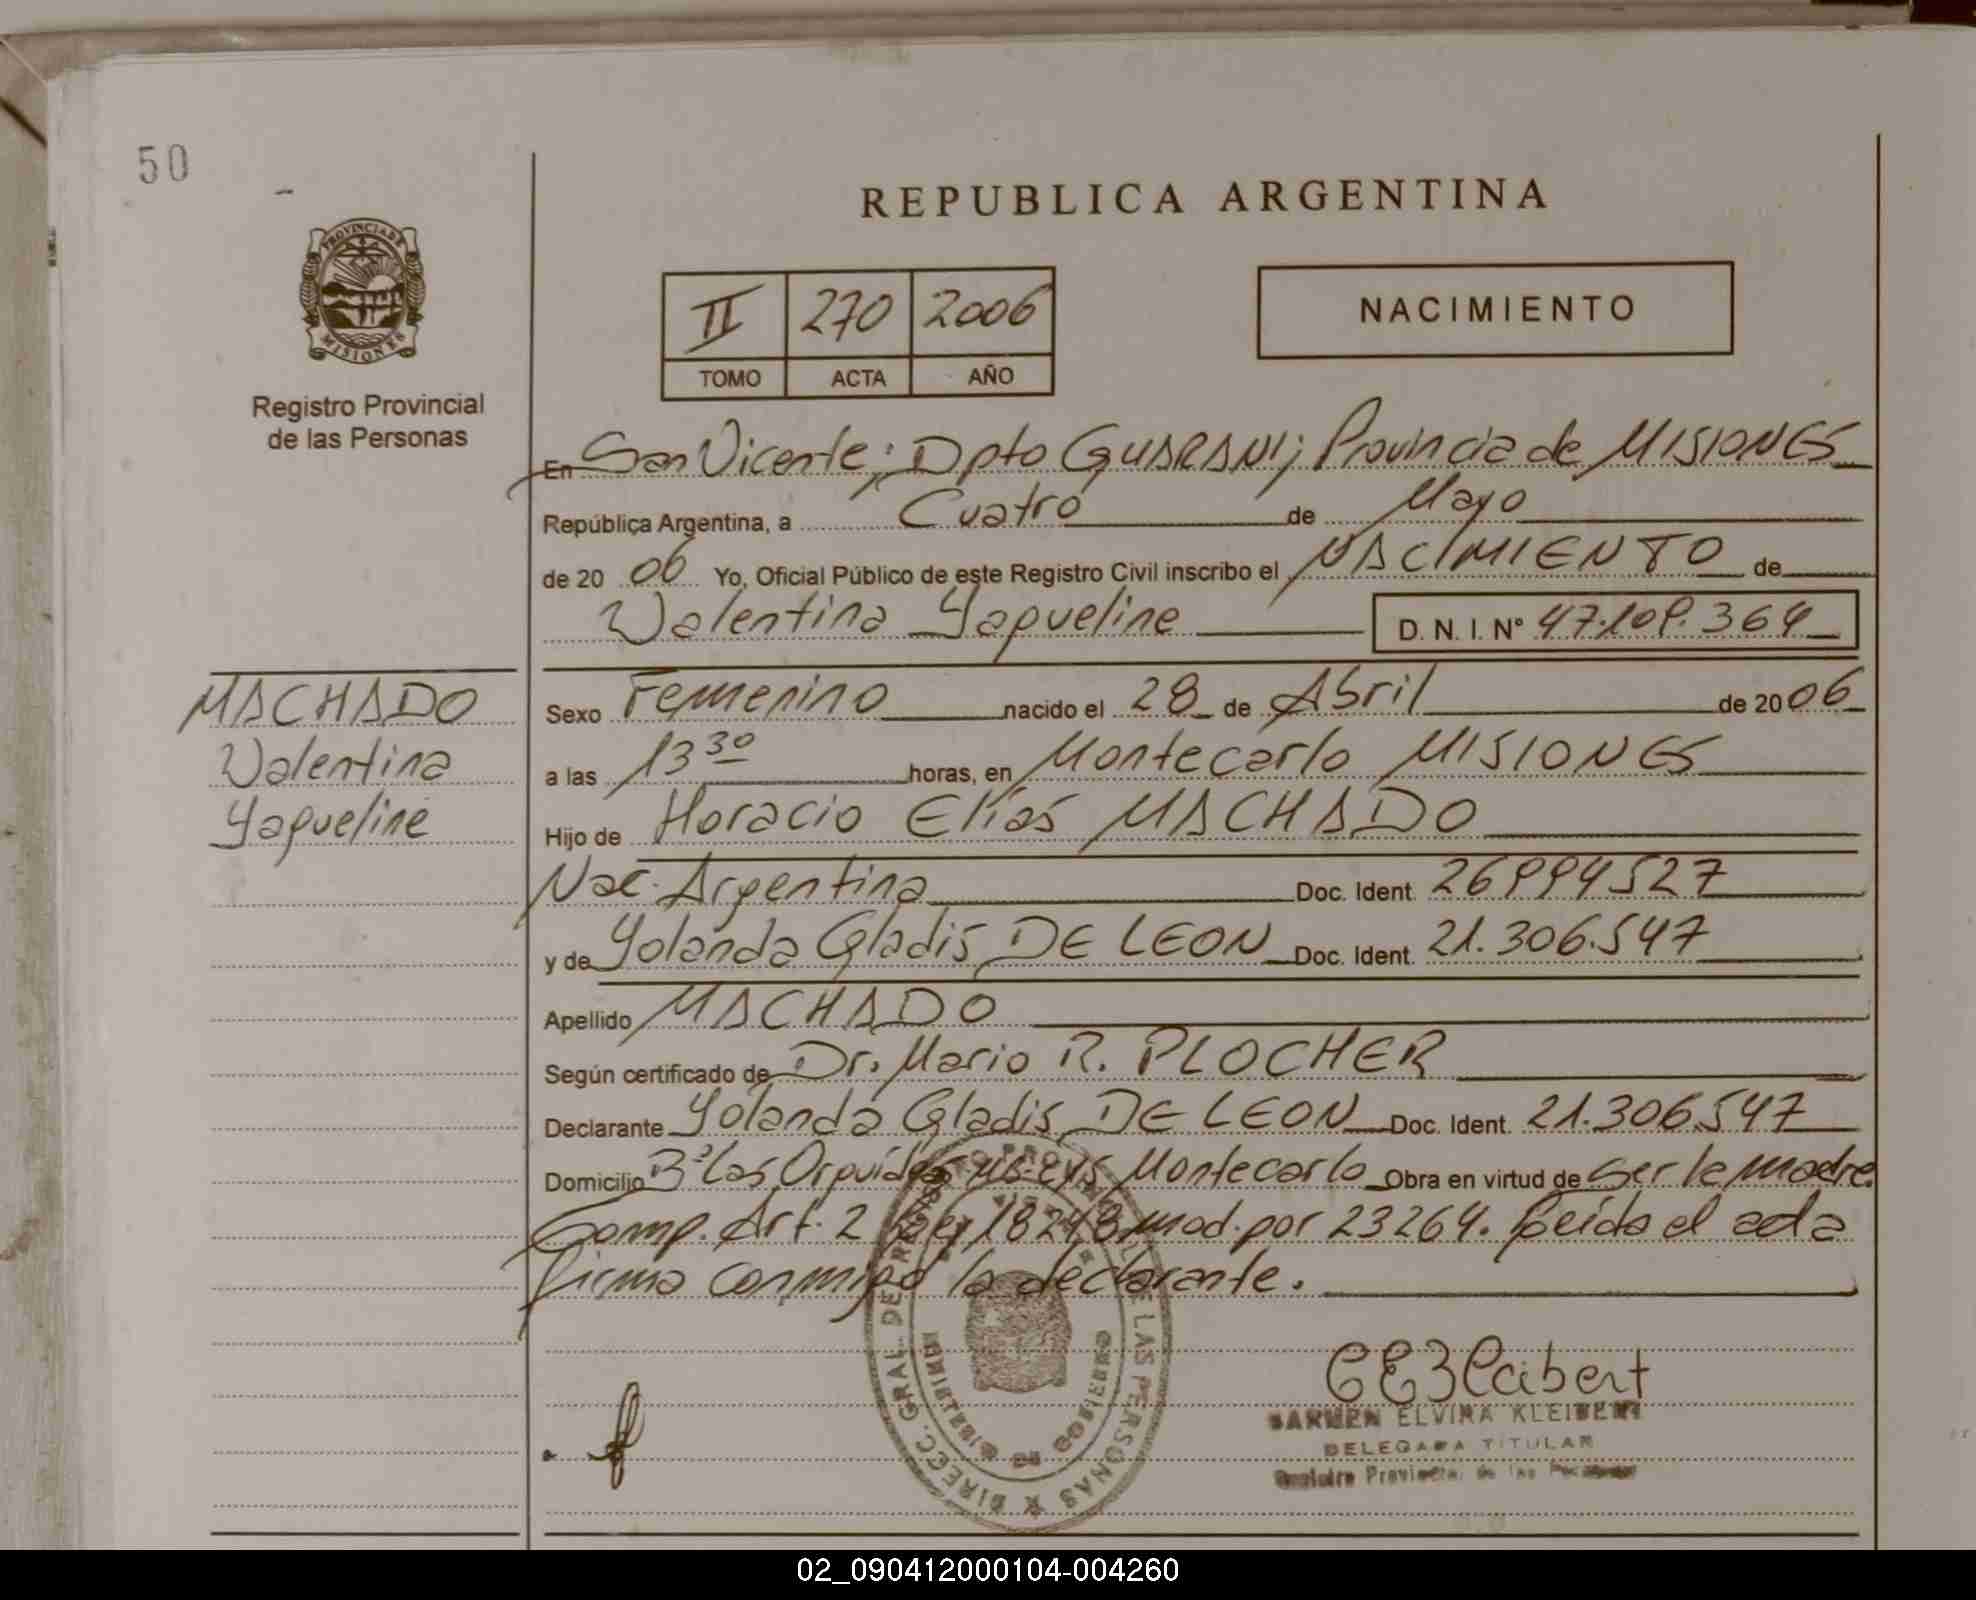 50
REPUBLICA ARGENTINA
PROVINCIA DE MISIONES
Registro Provincial
de las Personas
II 270 2006
TOMO ACTA AÑO
NACIMIENTO
En San Vicente; Dpto GUARANI; Provincia de MISIONES
República Argentina, a Cuatro de Mayo
de 20 06 Yo, Oficial Público de este Registro Civil inscribo el NACIMIENTO de
Valentina Yaqueline D. N. I. N° 47.109.364
MACHADO
Valentina
Yaqueline
Sexo Femenino nacido el 28 de Abril de 20 06
a las 13 30 horas, en Montecarlo MISIONES
Hijo de Horacio Elías MACHADO
Nac. Argentina Doc. Ident. 26994527
y de Yolanda Gladis DE LEON Doc. Ident. 21.306.547
Apellido MACHADO
Según certificado de Dr. Mario R. PLOCHER
Declarante Yolanda Gladis DE LEON Doc. Ident. 21.306.547
Domicilio B° Las Orquídeas Montecarlo Obra en virtud de ser la madre.
Comp. Art. 2 Ley 18248 mod. por 23264. Leída el acta
firma conmigo la declarante.
DIRECC. GRAL. DEL REGISTRO PROVINCIAL DE LAS PERSONAS
MINISTERIO DE GOBIERNO
CEKleibert
CARMEN ELVIRA KLEIBERT
DELEGADA TITULAR
Registro Provincial de las Personas
02_090412000104-004260